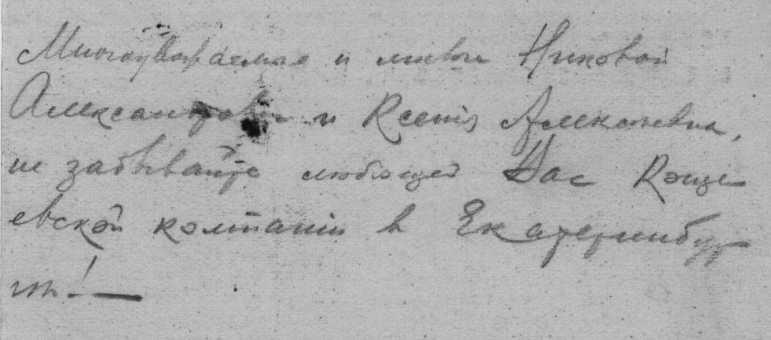 Многоуважаемые и милые Николай
Александрович и Ксения Алексеевна,
не забывайте любящей Вас Коще
евской компании в Екатеринбур
ге!—